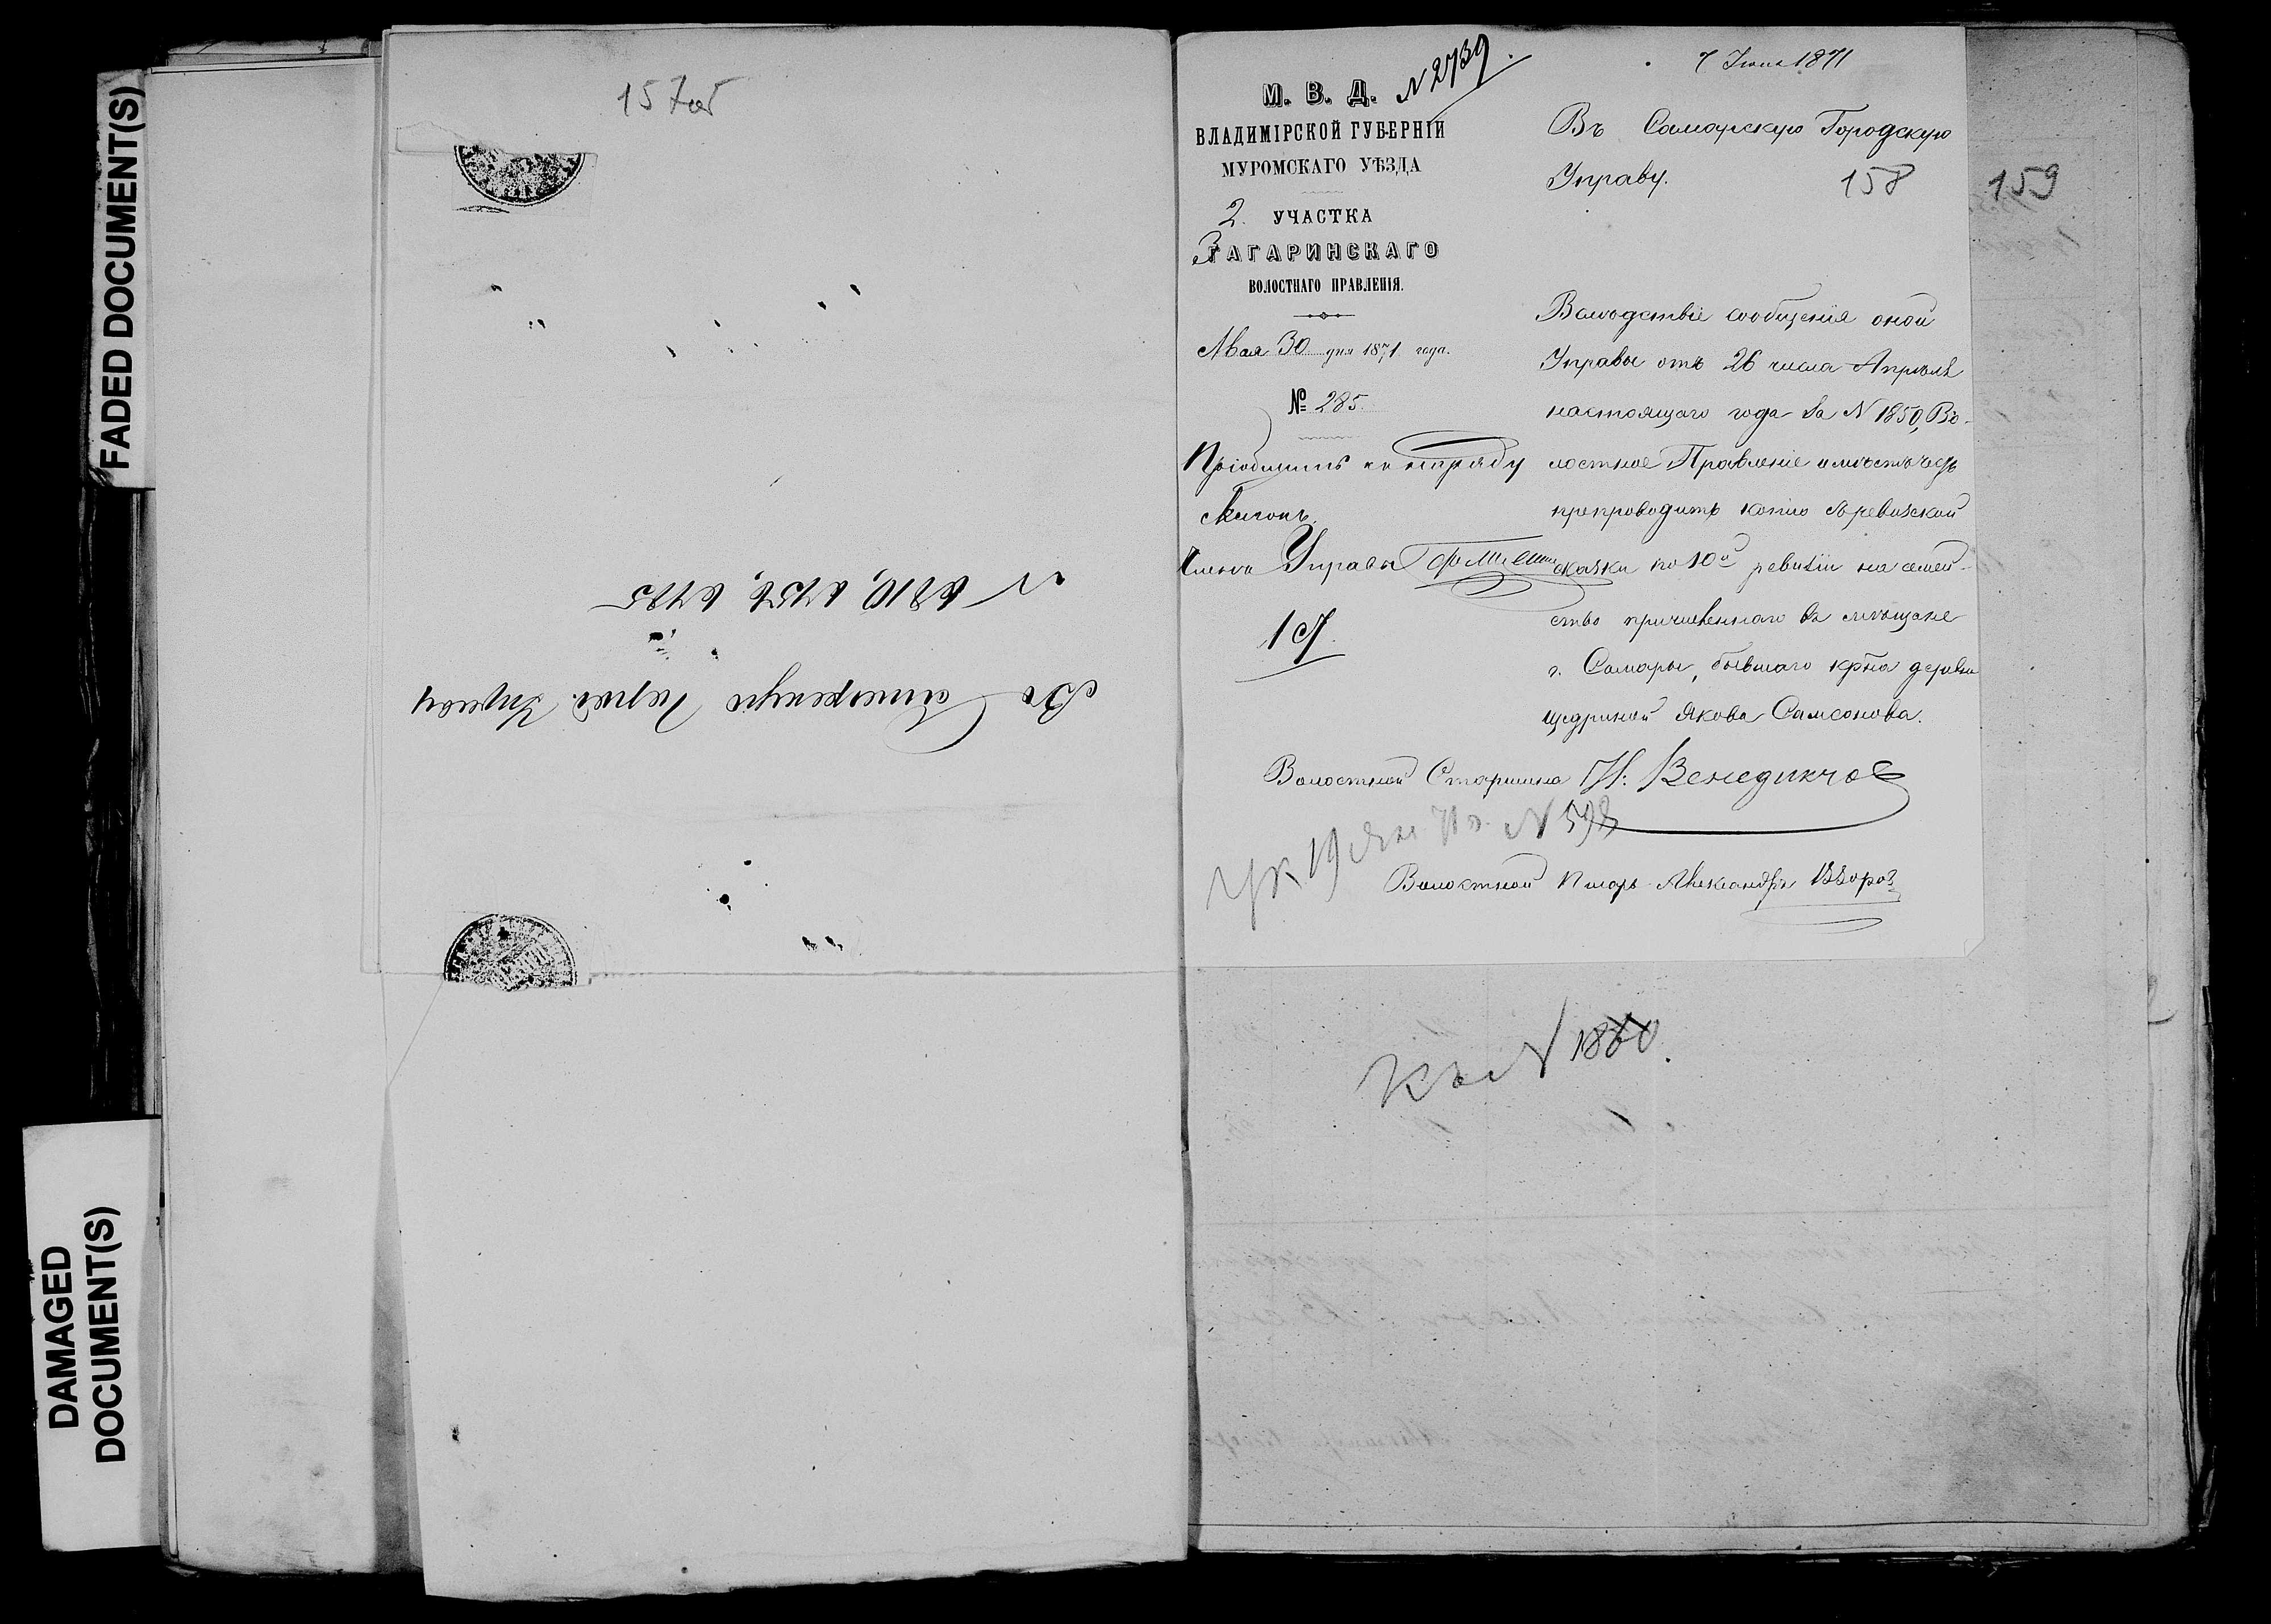 FADED DOCUMENT(S)
DAMAGED
DOCUMENT(S)
157об
№ 6810, 6756, 6785
Въ Самарскую Город. Управу
М. В. Д. N 2739.
ВЛАДИМІРСКОЙ ГУБЕРНІИ
МУРОМСКАГО УѢЗДА
2. УЧАСТКА
ЗАГАРИНСКАГО
ВОЛОСТНАГО ПРАВЛЕНІЯ.
Мая 30 дня 1871 года.
№ 285.
Пріобщить къ наряду
Членъ Управы
1 СТ.
7 Іюня 1871
Въ Самарскую Городскую
Управу.
158
159
Вслѣдствіе сообщенія оной
Управы отъ 26 числа Апрѣля
настоящаго года за N 1850, Во-
лостное Правленіе имѣетъ честь
препроводить копію съ ревизской
сказки по 10й ревизіи на семей-
ство причисленнаго въ мѣщане
г. Самары, бывшаго кр-на деревни
Щедриной Якова Самсонова.
Волостной Старшина И: Венедиктов
Ук 19 Янв 71 г. N 598
Волостной Писарь Александръ
Къ N 1860.